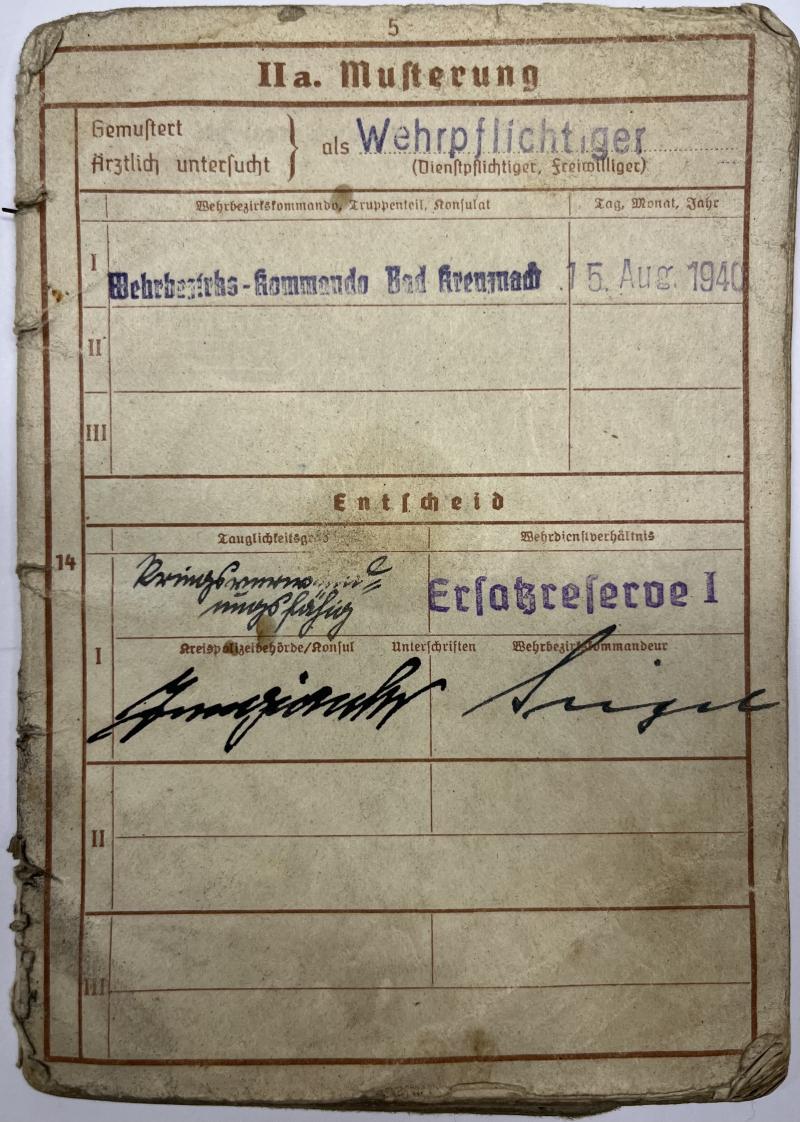 5
IIa. Musterung
Gemustert
Ärztlich untersucht
als Wehrpflichtiger
(Dienstpflichtiger, Freiwilliger)
Wehrbezirkskommando, Truppenteil, Konsulat Tag, Monat, Jahr
I Wehrbezirks-Kommando Bad Kreuznach 15. Aug. 1940
II
III
Entscheid
Tauglichkeitsgrad Wehrdienstverhältnis
14
Kriegsverwend=
ungsfähig
Ersatzreserve I
Kreispolizeibehörde/Konsul Unterschriften Wehrbezirkskommandeur
I
II
III